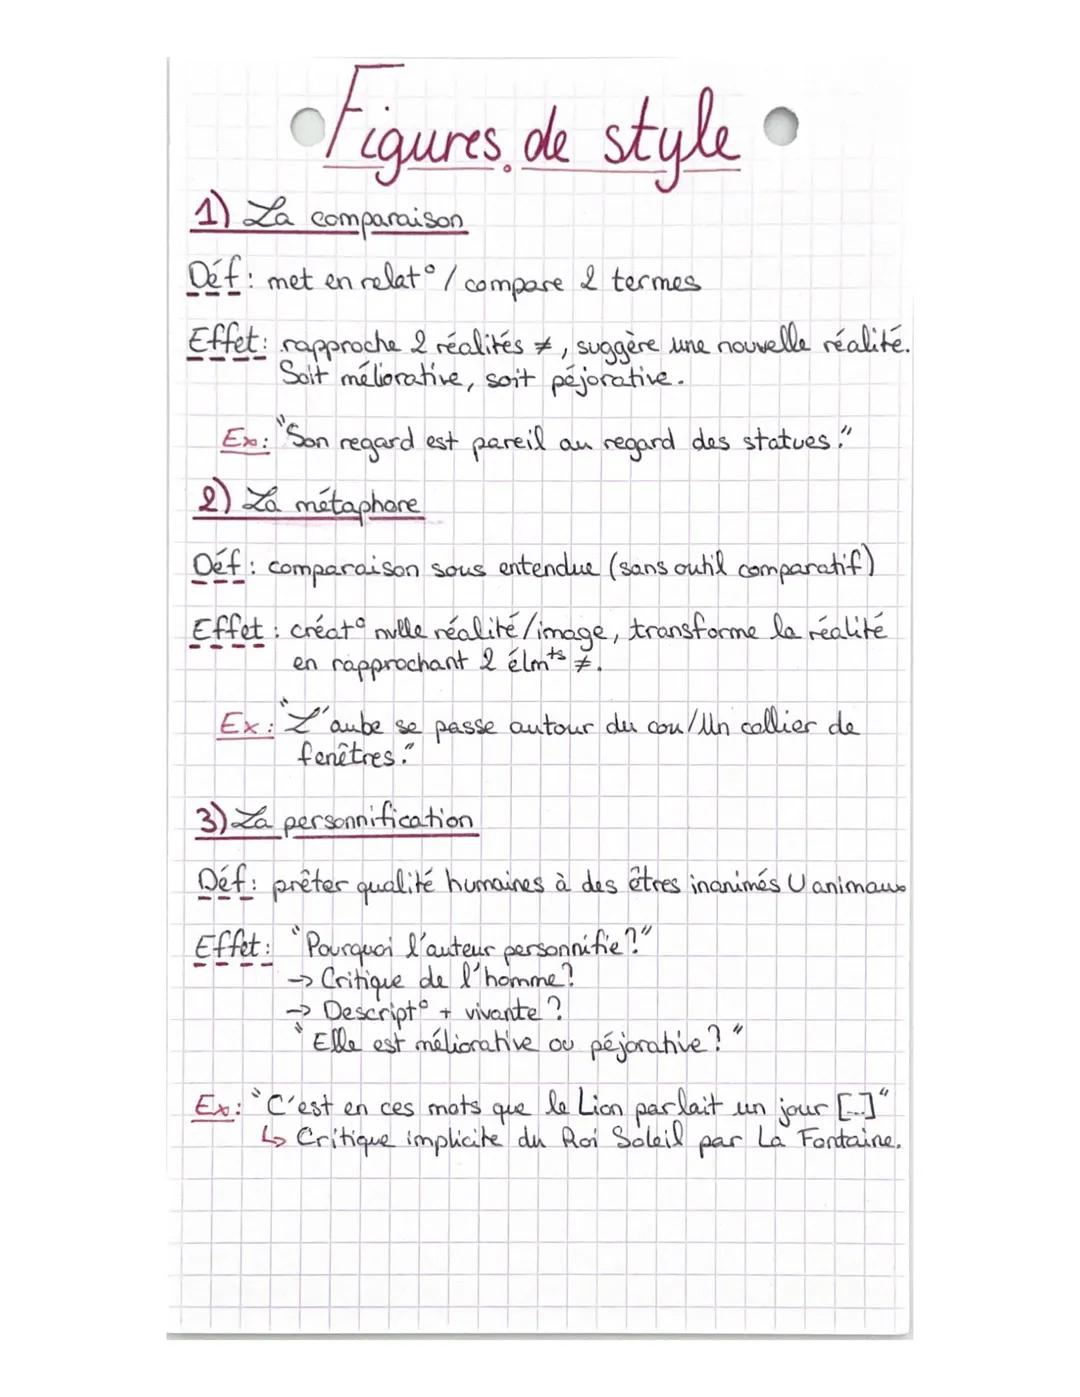 Figures de style
1) La comparaison
Déf: met en relat° / compare 2 termes
Effet: rapproche 2 réalités ≠, suggère une nouvelle réalité.
Soit méliorative, soit péjorative.
Ex: "Son regard est pareil au regard des statues."
2) La métaphore
Déf: comparaison sous entendue (sans outil comparatif)
Effet: créat° nvlle réalité/image, transforme la réalité
en rapprochant 2 élmts ≠.
Ex: "L'aube se passe autour du cou/Un collier de
fenêtres."
3) La personnification
Déf: prêter qualité humaines à des êtres inanimés U animaux
Effet: "Pourquoi l'auteur personnifie?"
→ Critique de l'homme?
→ Descript° + vivante?
"Elle est méliorative ou péjorative?"
Ex: "C'est en ces mots que le Lion parlait un jour [...]"
↳ Critique implicite du Roi Soleil par La Fontaine.